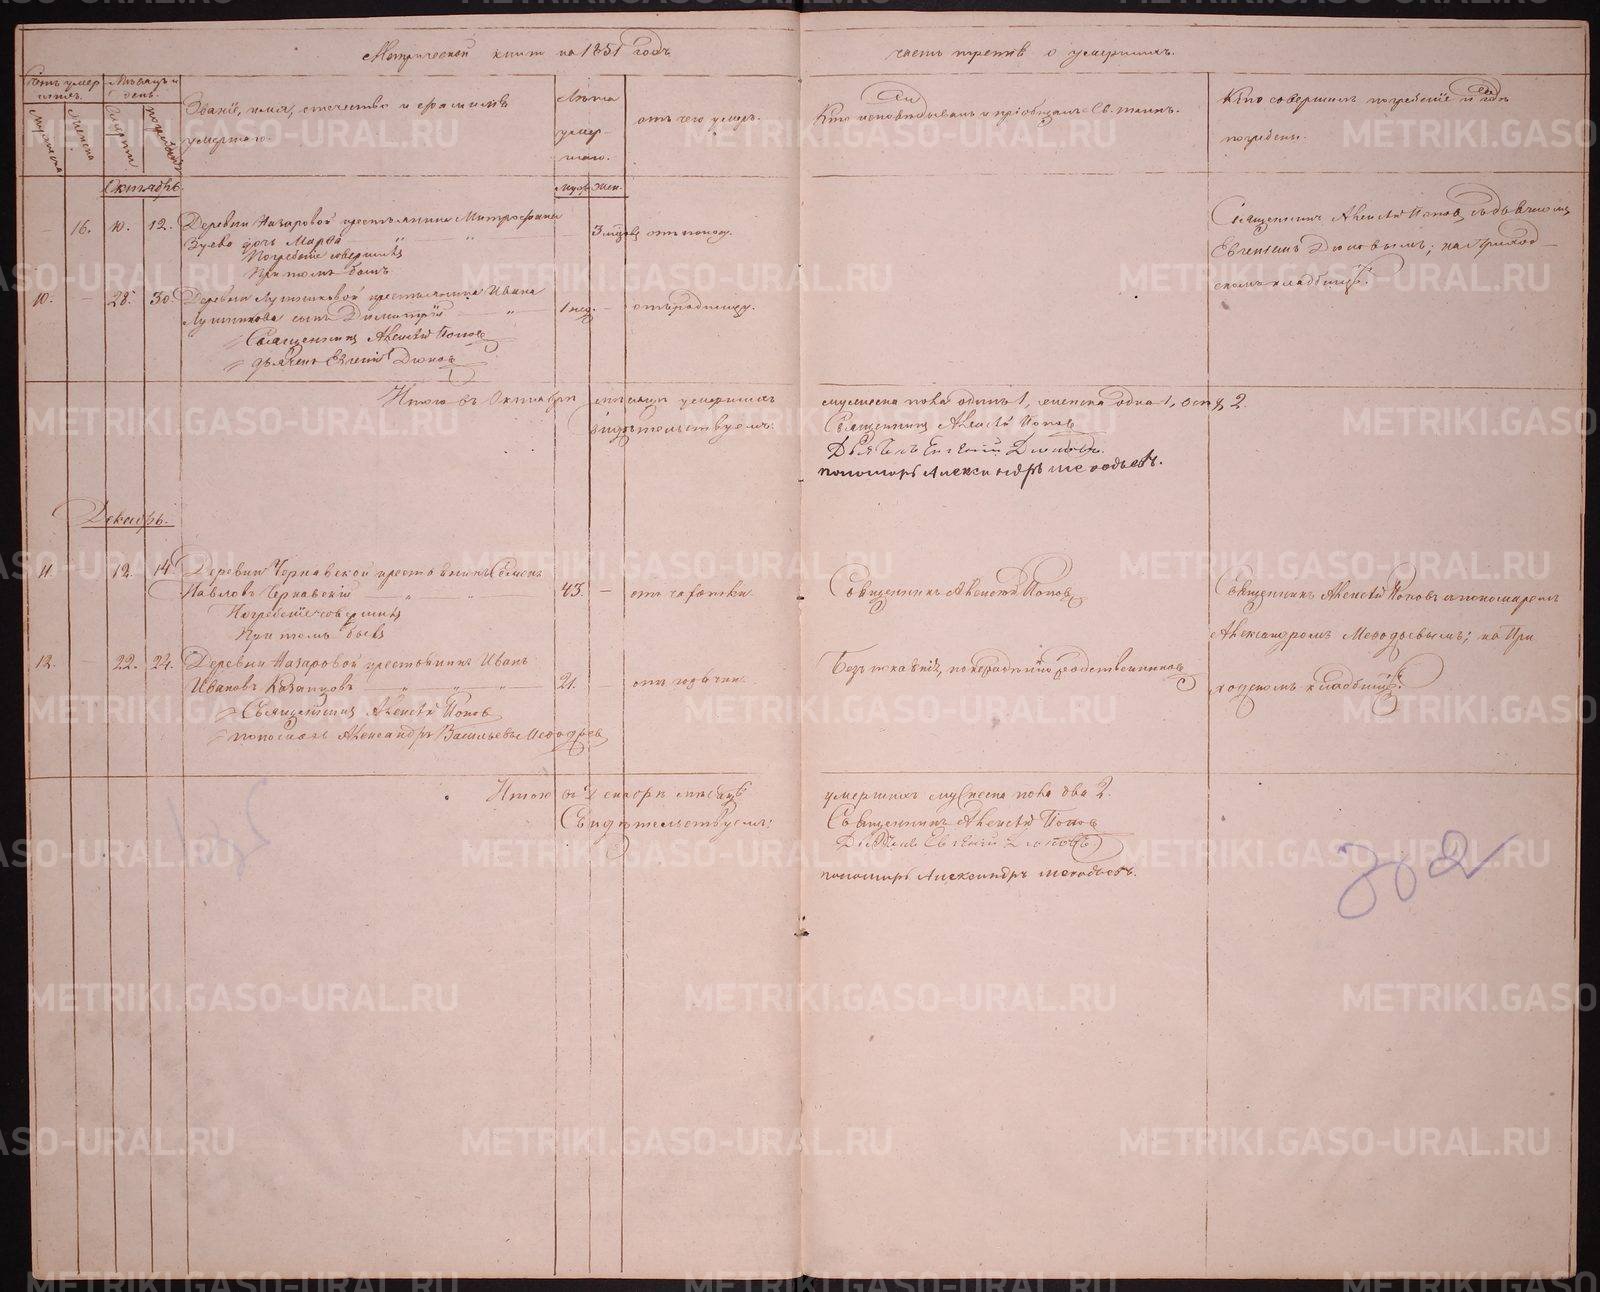 Метрической книги на 1851 годъ
часть третія о умершихъ.
Счетъ умершихъ.
Мѣсяцъ и день.
Мужеска
Женска
Смерти
погребенія
Званіе, имя, отчество и фамилія
умершаго.
Лѣта
умер-
шаго.
отъ чего умеръ.
Кто исповѣдывалъ и пріобщалъ Св. таинъ.
Кто совершалъ погребеніе и гдѣ
погребенъ.
Октябрь.
муж. жен.
16. 10. 12. Деревни Назаровой крестьянина Митрофана
Зуева дочь Марѳа 3 мѣсяц. отъ поносу.
Погребеніе совершалъ
При томъ былъ
Священникъ Алексѣй Поповъ съ дьячкомъ
Евгеніемъ Дюковымъ; на Приход-
скомъ кладбищѣ.
10. 28. 30. Деревни Лушниковой крестьянина Ивана
Лушникова сынъ Димитрій 1 нед. отъ родимцу.
Священникъ Алексѣй Поповъ
дьячекъ Евгеній Дюковъ
Итого въ Октябрѣ мѣсяцѣ умершихъ мужеска пола одинъ 1, женска одна 1, 2.
Свидѣтельствуемъ:
Священникъ Алексѣй Поповъ
Дьячекъ Евгеній Дюковъ.
пономарь Александръ Меѳодьевъ.
Декабрь.
11. 12. 14. Деревни Чернавской крестьянинъ Семенъ
Павловъ Чернавскій 43. отъ чахотки.
Погребеніе совершалъ
При томъ былъ
Священникъ Алексѣй Поповъ
Священникъ Алексѣй Поповъ съ пономаремъ
Александромъ Меѳодьевымъ; на При
ходскомъ кладбищѣ.
12. 22. 24. Деревни Назаровой крестьянинъ Иванъ
Ивановъ Казанцовъ 21. отъ горячки.
Безъ покаянія, по нерадѣнію родственниковъ
Священникъ Алексѣй Поповъ
пономарь Александръ Васильевъ Меѳодьевъ
Итого въ Декабрѣ мѣсяцѣ умершихъ мужеска пола два 2.
Свидѣтельствуемъ:
Священникъ Алексѣй Поповъ
Дьячекъ Евгеній Дюковъ
пономарь Александръ Меѳодьевъ.
METRIKI.GASO-URAL.RU